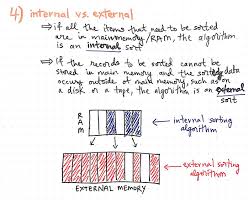 4) internal vs. external
⇒ if all the items that need to be sorted
are in main memory/RAM, the algorithm
is an internal sort
⇒ if the records to be sorted cannot be
stored in main memory and the sorting data
occurs outside of main memory, such as on
a disk or a tape, the algorithm is an external
sort
R
A
M
internal sorting
algorithm
external sorting
algorithm
EXTERNAL MEMORY